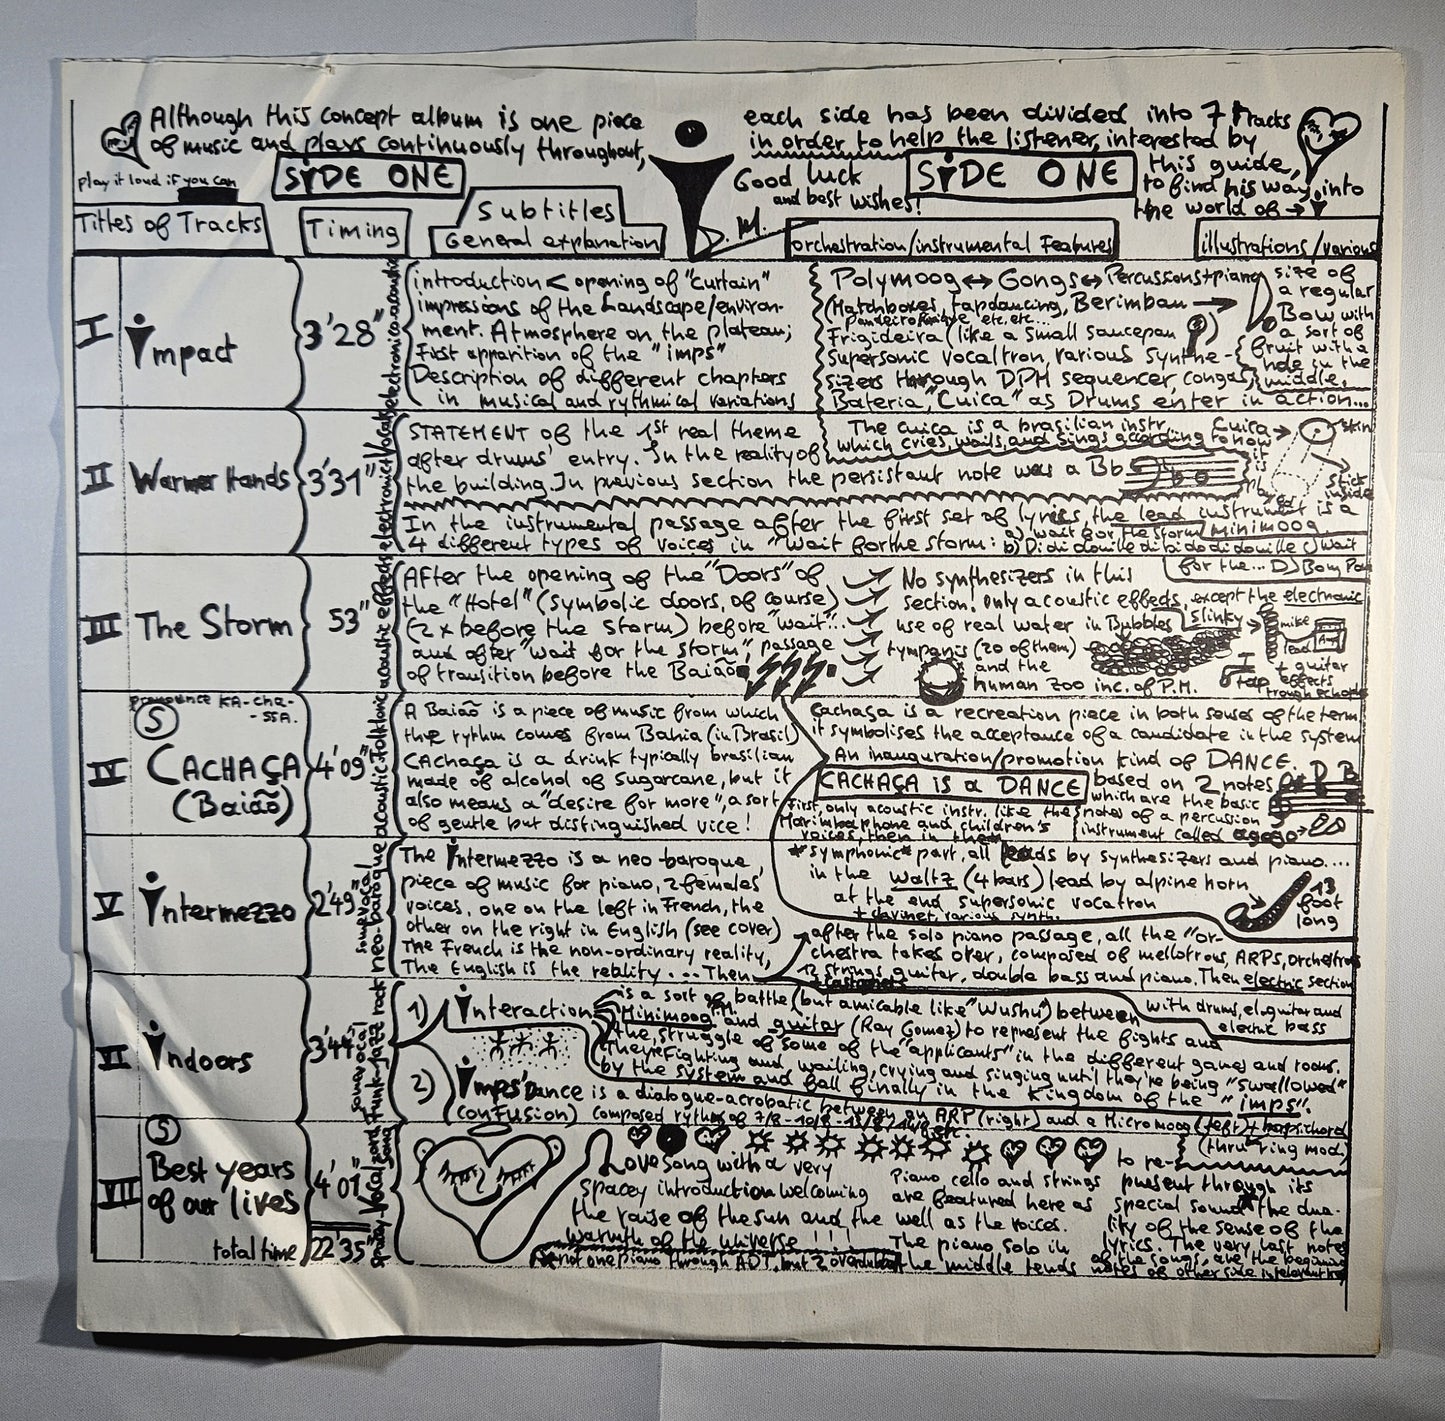 Although this concept album is one piece
of music and plays continuously throughout,
each side has been divided into 7 Tracks
in order to help the listener, interested by
this guide,
to find his way into
the world of → i
play it loud if you can
SiDE ONE
Good luck
and best wishes!
P. M.
SiDE ONE
Titles of Tracks
Timing
Subtitles
General explanation
orchestration/instrumental Features
illustrations/various
I
impact
3'28"
electronica-acoustic
introduction < opening of "curtain"
impressions of the Landscape/environ-
ment. Atmosphere on the plateau;
First apparition of the "imps"
Description of different chapters
in musical and rythmical variations
Polymoog ↔ Gongs ↔ Percussons+piano
Matchboxes, tapdancing, Berimbau →
Pandeiro etc. etc...
Frigideira (like a small saucepan)
supersonic vocaltron, various synthe-
sizers through DPM sequencer, congas,
Bateria, "Cuica" as Drums enter in action...
size of
a regular
Bow with
a sort of
fruit with a
hole in the
middle.
II
Warmer Hands
3'31"
electronic/Vocals
STATEMENT of the 1st real theme
after drums' entry. In the reality of
the building. In previous section the persistant note was a Bb
The cuica is a brasilian instr.
which cries, wails, and sings according to how
it
is
played
Cuica →
skin
stick
inside
In the instrumental passage after the first set of lyrics the lead instrument is a
minimoog
4 different types of voices in "Wait for the storm: a) wait for the storm
b) Di di douille di bi do di douille c) wait
for the... D) Bom Pom
III
The Storm
53"
acoustic effects
After the opening of the "Doors" of
the "Hotel" (symbolic doors, of course)
(2x before the storm) before "wait"...
and after "wait for the storm" passage
of transition before the Baião
No synthesizers in this
section. only acoustic effects, except the electronic
use of real water in Bubbles
Slinky →
tympanis (20 of them)
and the
human zoo inc. of P.M.
mike
lead
tap
+ guitar
effects
trough echoes
IV
pronounce KA-cha-
-SSA.
S
CACHAÇA
(Baião)
4'09"
acoustic Folkloric
A Baião is a piece of music from which
the rythm comes from Bahia (in Brasil)
CAchaça is a drink typically brasilian
made of alcohol of sugarcane, but it
also means a "desire for more", a sort
of gentle but distinguished vice!
Cachaça is a recreation piece in both senses of the term
it symbolises the acceptance of a candidate in the system
An inauguration/promotion kind of DANCE.
CACHAÇA is a DANCE
based on 2 notes D B
which are the basic
notes of a percussion
instrument called agogo →
First, only acoustic instr. like the
Marimbaphone and children's
voices, then in the
"symphonic" part, all leads by synthesizers and piano....
in the waltz (4 bars) lead by alpine horn
at the end supersonic vocatron
+ clavinet, various synth.
13
foot
long
V
intermezzo
2'49"
some vocal
neo-baroque
The intermezzo is a neo-baroque
piece of music for piano, 2 females'
voices, one on the left in French, the
other on the right in English (see cover)
The French is the non-ordinary reality,
The English is the reality... Then
after the solo piano passage, all the "or-
chestra takes over, composed of mellotrons, ARPS, orchestrons
12 strings guitar, double bass and piano. Then electric section
+ castanets
with drums, el. guitar and
electric bass
VI
indoors
3'44"
some vocal
Funk-jazz rock
1) interaction
is a sort of battle (but amicable like "Wushu") between
Minimoog P.M. and guitar (Ray Gomez) to represent the fights and
the struggle of some of the "applicants" in the different games and rooms.
They're Fighting and wailing, crying and singing until they're being "swallowed"
by the system and fall finally in the Kingdom of the "imps".
2) imps' Dance is a dialogue-acrobatic between an ARP (right) and a Micromoog (left) + harpsichord
(confusion) composed rythms of 7/8 - 10/8 - etc.
(thru ring mod)
VII
S
Best years
of our lives
4'01"
total time
22'35"
Vocal
song
spacey
Love song with a very
spacey introduction welcoming
the raise of the sun and the
warmth of the universe!!!
not one piano through ADT, but 2 overdubs
Piano, cello and strings
are featured here as
well as the voices.
The piano solo in
the middle tends
to re-
present through its
special sound the dua-
lity of the sense of the
lyrics. The very last notes
of the songs, are the beginning
notes of other side